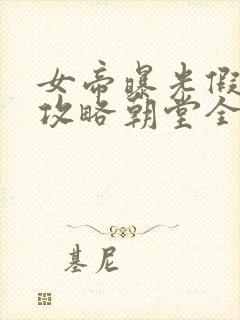 女帝曝光假
攻略朝堂全
基尼